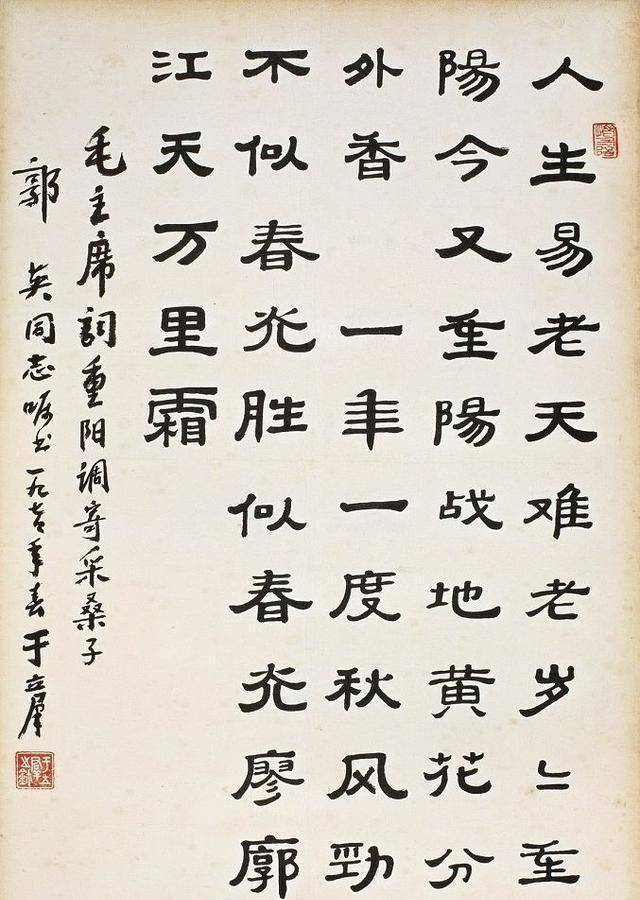 人生易老天难老岁〻重
陽今又重陽战地黄花分
外香 一年一度秋风勁
不似春光胜似春光廖廓
江天万里霜
毛主席詞重阳调寄采桑子
郭 英同志嘱书一九年春于立群